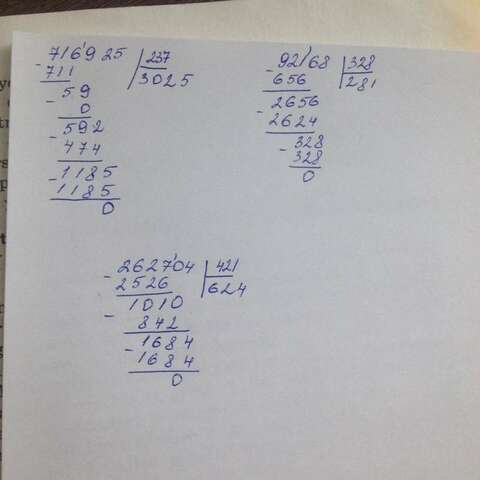 716925 | 237
- 711 3025
59
- 0
592
- 474
1185
- 1185
0
92168 | 328
- 656 281
2656
- 2624
328
- 328
0
262704 | 421
- 2526 624
1010
- 842
1684
- 1684
0